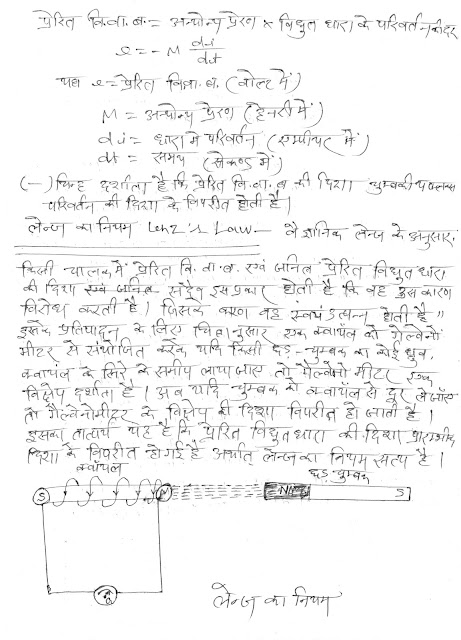 प्रेरित वि.वा.ब. = अन्योन्य प्रेरण x विद्युत धारा के परिवर्तन की दर
e = - M di/dt
यहाँ e = प्रेरित वि.वा.ब. (वोल्ट में)
M = अन्योन्य प्रेरण (हेनरी में)
di = धारा में परिवर्तन (एम्पीयर में)
dt = समय (सेकण्ड में)
(-) चिन्ह दर्शाता है कि प्रेरित वि.वा.ब की दिशा चुम्बकीय फ्लक्स
परिवर्तन की दिशा के विपरीत होती है।
लेन्ज का नियम Lenz's Law - वैज्ञानिक लेन्ज के अनुसार,
किसी चालक में प्रेरित वि.वा.ब. एवं जनित प्रेरित विद्युत धारा
की दिशा सदैव इस प्रकार होती है कि वह उस कारण
विरोध करती है। जिसके कारण वह स्वयं उत्पन्न होती है"
इसके प्रतिपादन के लिए चित्रानुसार एक क्वायल को गैल्वेनो
मीटर से संयोजित करके यदि किसी दंड-चुम्बक का कोई ध्रुव,
क्वायल के सिरे के समीप लाया जाए तो गैल्वेनो मीटर एक
विक्षेप दर्शाता है। अब यदि चुम्बक को क्वायल से दूर ले जाएं
तो गैल्वेनोमीटर के विक्षेप की दिशा विपरीत हो जाती है।
इसका तात्पर्य यह है कि प्रेरित विद्युत धारा की दिशा प्रारम्भीक
दिशा के विपरीत हो गई है अर्थात् लेन्ज का नियम सत्य है।
क्वॉयल
दंड चुम्बक
S N N S
G
लेन्ज का नियम